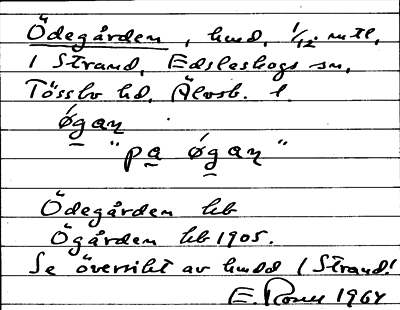 Ödegården, hmd, 1/12 mtl,
i Strand, Edsleskogs sn,
Tössbo hd, Älvsb. l.
ǿgaɳ
"pa ǿgaɳ"
Ödegården hb
Ögården hb 1905.
Se översikt av hmdd i Strand!
E. 1964